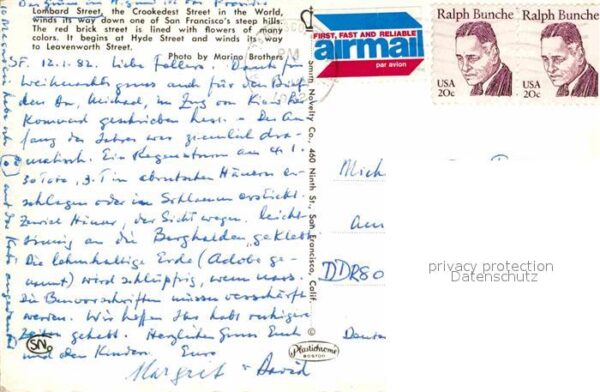 Lombard Street, the Crookedest Street in the World,
winds its way down one of San Francisco's steep hills.
The red brick street is lined with flowers of many
colors. It begins at Hyde Street and winds its way
to Leavenworth Street.
Photo by Marino Brothers
SF. 12.1.82. Liebe Dank für
Weihnachtsgruss auch für den Brief
den Du, Michael, im Zug von
geschrieben hast. Der An-
fang des Jahres war ziemlich dra-
matisch. Ein Regensturm am 4.1.
30 Tote, z.T. in abrutschen Häuser er-
schlagen oder im Schlamm erstickt.
Zuviele Häuser, der Sicht wegen, leicht-
sinnig an die Berghalden geklebt.
Die lehmhaltige Erde (Adobe ge-
nannt) wird schlüpfrig, wenn nass.
Die Bauvorschriften müssen verschärft
werden. Wir hoffen Ihr habt ruhigere
Zeiten gehabt. Herzlichen Gruss Euch
und den Kindern. Eure
Margret + David
SN
Smith Novelty Co., 460 Ninth St., San Francisco, Calif.
©
Plastichrome
BOSTON
PM
FIRST, FAST AND RELIABLE
airmail
par avion
Ralph Bunche
USA
20c
Ralph Bunche
USA
20c
Mich
am
DDR80
privacy protection
Datenschutz